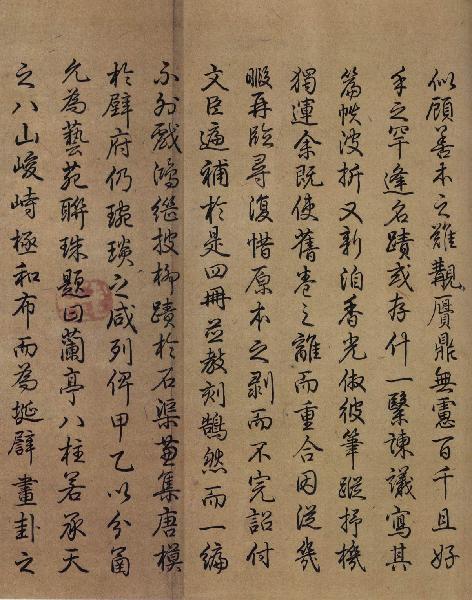 似顧善本之難覯贋鼎無慮百千且好
手之罕逢名蹟或存什一繄諫議寫其
篇帙波折又新洎香光倣彼筆蹤抒機
獨運余既使舊卷之離而重合因從幾
暇再臨尋復惜原本之剥而不完詔付
文臣遍補於是四冊並教刻鵠然而一編
不戲鴻繼披柳蹟於石渠薈集唐模
於璧府仍琬琰之咸列俾甲乙以分函
允為藝苑聯珠題曰蘭亭八柱若承天
之八山峻峙極和布而為擘畫卦之